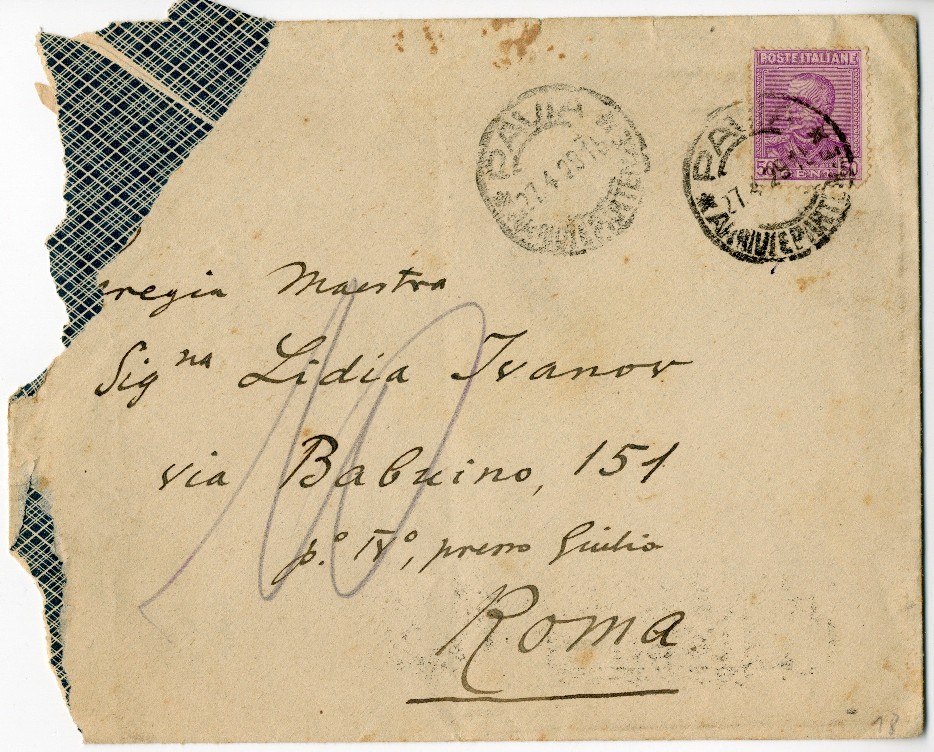 POSTE ITALIANE
50 CENT 50
* PAVIA *
27.4.28
ARRIVI E PARTENZE
* PAVIA *
27.4.28
ARRIVI E PARTENZE
regia Maestra
Sig^na Lidia Ivanov
via Babuino, 151
p.° IV°, presso Giulio
Roma
18